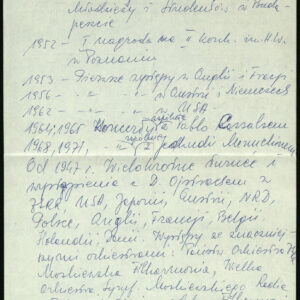 Młodzieży i Studentów w Buda-
peszcie
1952 - I nagroda na II Konk. im H. W.
w Poznaniu
1953 - Pierwsze występy w Anglii i Francji
1956 - " - " w Austrii i Niemczech
1962 - " - " w USA
1964, 1965 Koncerty wspólne z Pablo Casalsem
1968, 1971, " wspólne z Jehudi Menuchinem
Od 1947 r. Wielokrotne turnee i
wystąpienia z D. Ojstrachem w
ZSRR USA, Japonii, Austrii, NRD,
Polsce, Anglii, Francji, Belgii,
Holandii, Danii. Występy ze znaczniej-
szymi orkiestrami: Państw. Orkiestra
Moskiewska Filharmonia, Wielka
Orkiestra Symf. Moskiewskiego Radia